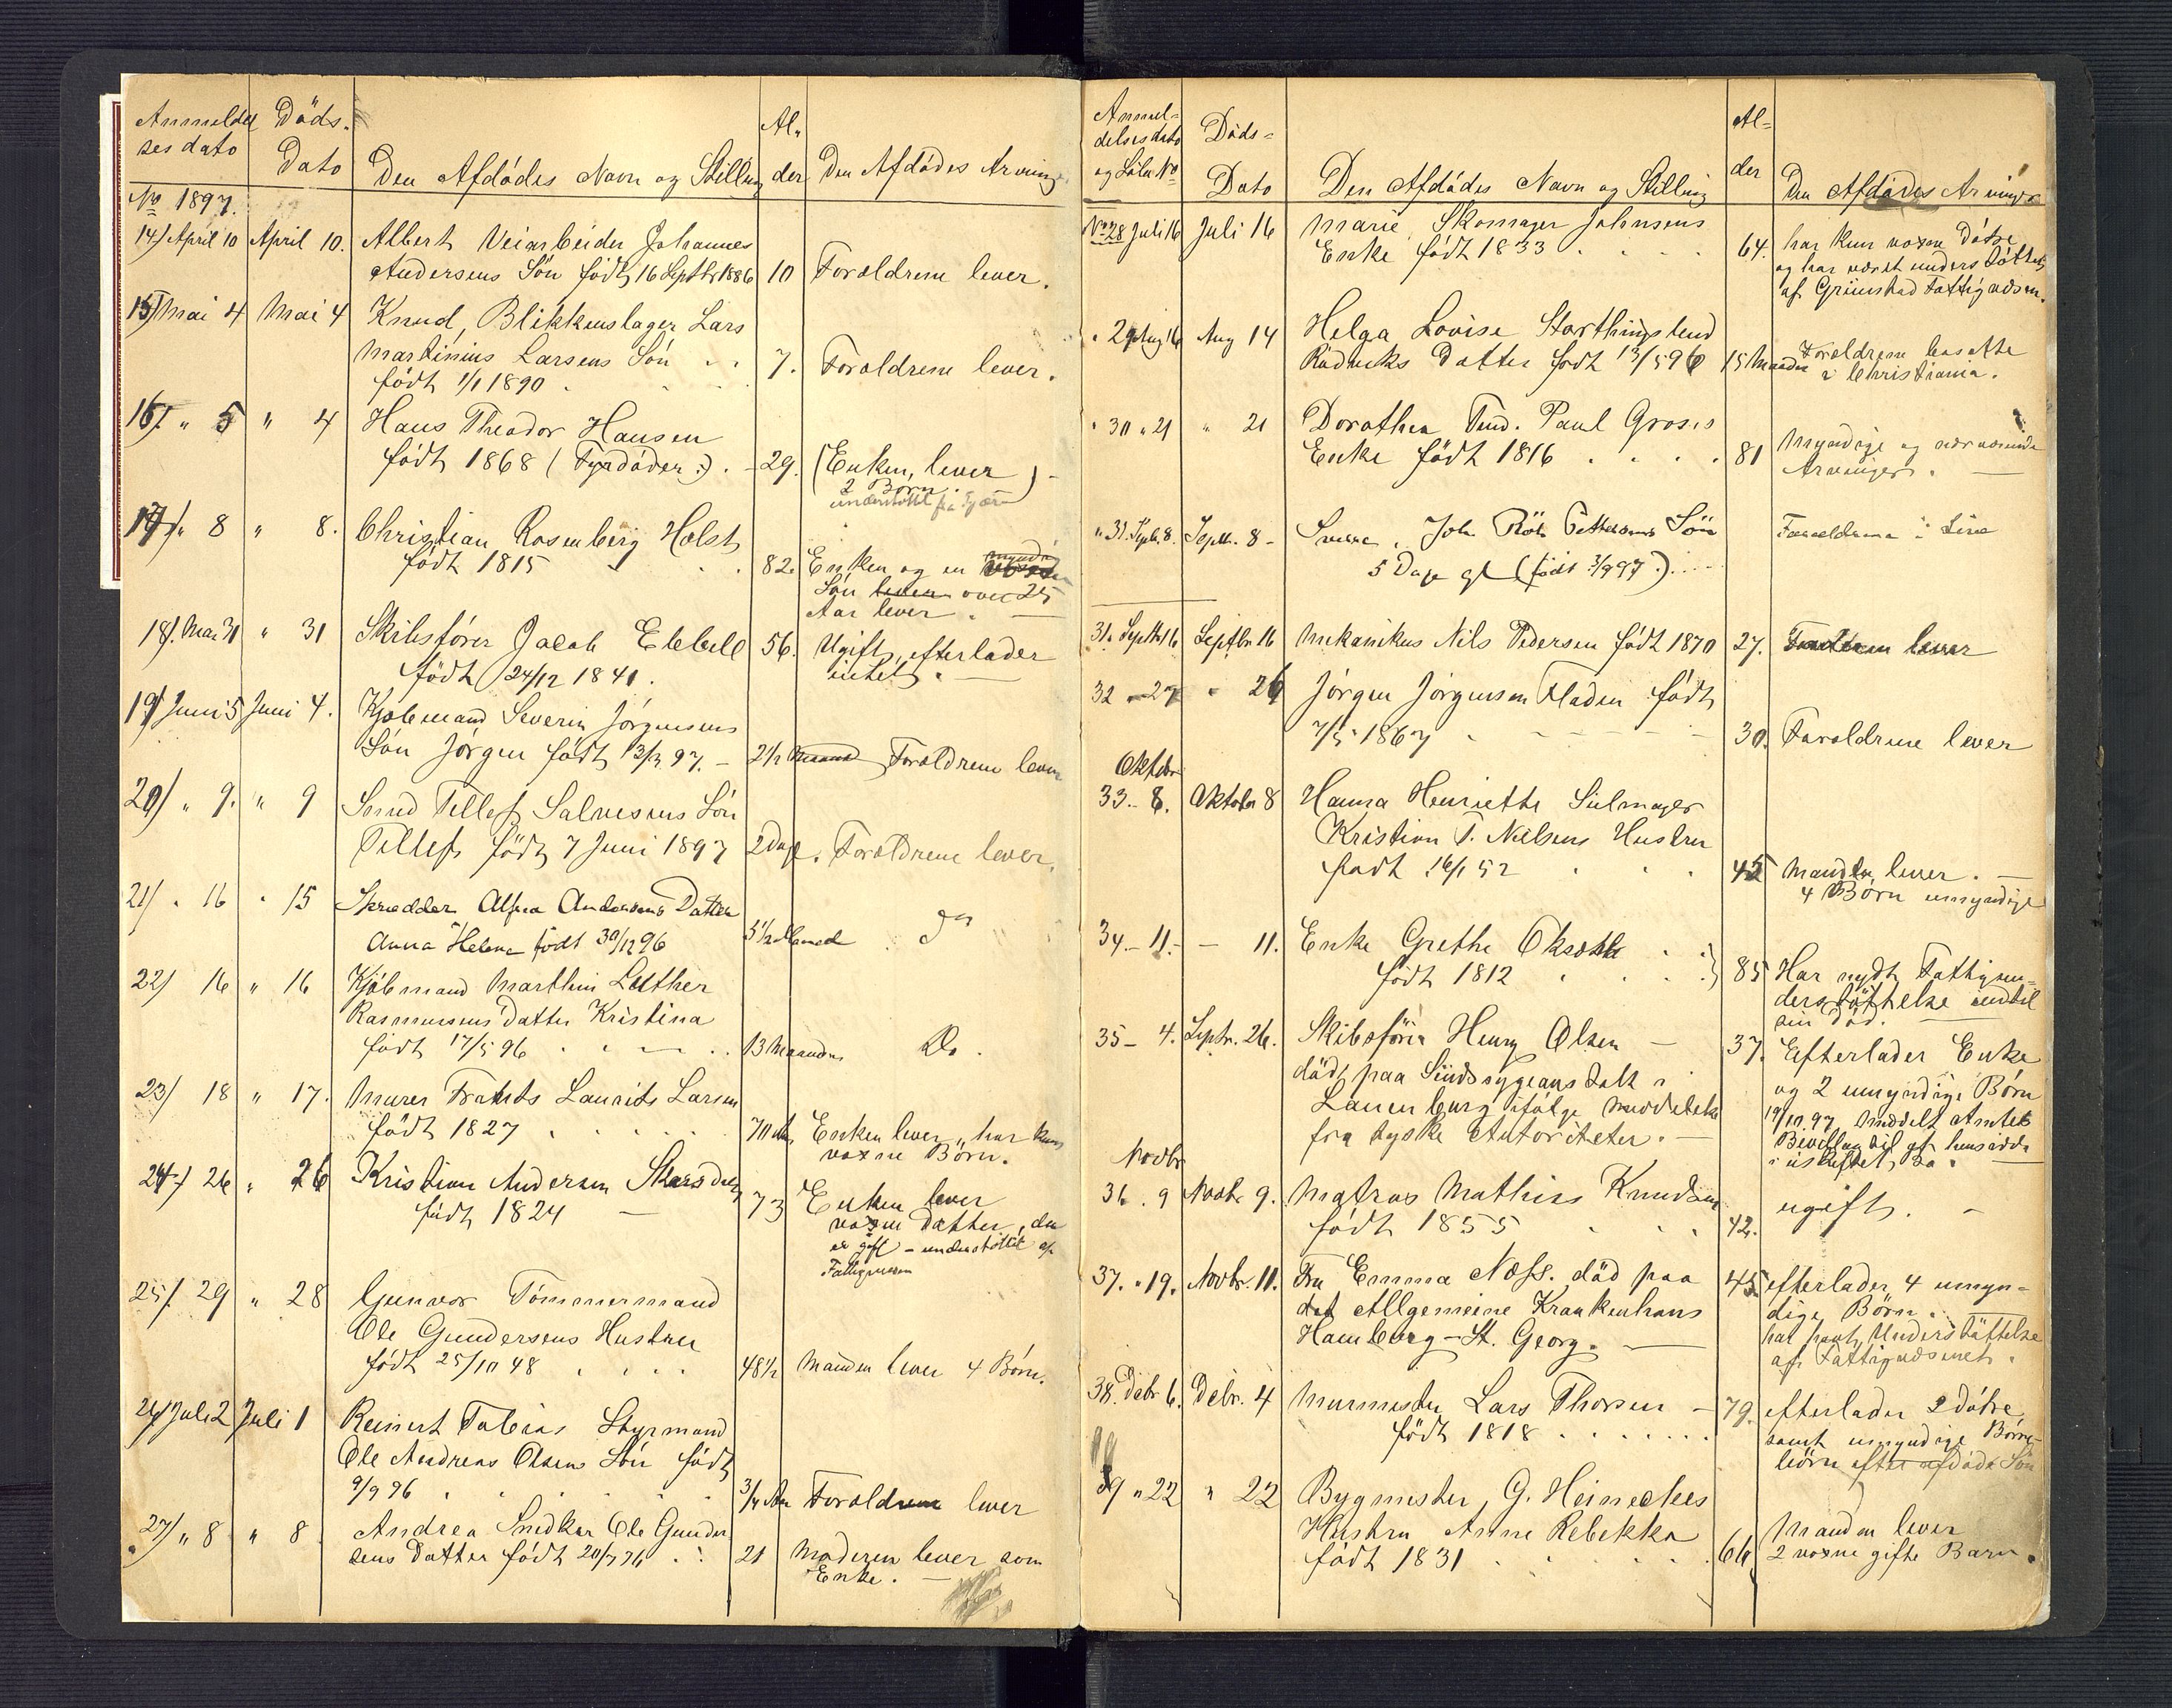 Anmeldel
ses dato
Døds-
Dato
Den Afdødes Navn og Stilling
Al-
der
Den Afdødes Arving
No 1897.
14) April 10 April 10. Albert Veiarbeider Johannes
Andersens Søn født 16 Septbr 1886 10 Forældrene lever.
15) Mai 4 Mai 4 Knud, Blikkenslager Lars
Martinius Larsens Søn . . 7. Forældrene lever.
født 1/1 1890 .
16). " 5 " 4 Hans Theodor Hansen
født 1868 (Fyrbøder). - 29. (Enken lever) -
2 Børn.
understøttet fra
17) " 8 " 8. Christian Rosenberg Holst
født 1815 . . 82. Enken og en
Søn over 25
Aar lever . —
18). Mai 31 " 31 Skibsfører Jacob Ebbell 56. Ugift, efterlader
født 24/12 1841. intet. —
19) Juni 5 Juni 4. Kjøbmand Severin Jørgensens
Søn Jørgen født 13/3 97. - 2 1/2 Maaned Forældrene lever
20) " 9. " 9 Smed Tellef Salvesens Søn
Tellef født 7 Juni 1897 2 Dage. Forældrene lever.
21) " 16 " 15 Skrædder Andersens Datter
Anna Helene født 30/12 96 5 1/2 Maaned Do
22) 16 " 16 Kjøbmand Marthin Luther
Rasmussens Datter Kristina
født 17/5 96 . . — . . 13 Maaneder Do.
23) 18 " 17. Murer Frants Laurits Larsen
født 1827 . . . . . 70 Aar Enken lever, har kun
voxne Børn.
24) 26 " 26 Kristian Andersen
født 1824 — 73 Enken lever
voxne Datter, der
er gift - understøttet af
Fattigvæsen
25). 29 " 28 Gunvor Tømmermand
Ole Gundersens Hustru
født 25/10 48 . . . . 48 1/2 Manden lever 4 Børn.
26) Juli 2 Juli 1 Reinert Tobias Styrmand
Ole Andreas Olsens Søn født
9/9 96 . . . . . 3/4 Aar Forældrene lever
27) " 8 " 8 Andrea Snedker Ole Gunder
sens Datter født 20/7 76 . . 21 Moderen lever som
Enke. —
Anmel-
delsesdato
og Løbe No
Døds-
Dato
Den Afdødes Navn og Stilling
Al-
der
Den Afdødes Arvinger
No 28 Juli 16 Juli 16 Marie, Skomager Johnsens
Enke født 1833 . . . . 64. har kun voxne Døtre
og har været understøttet
af Grimstad Fattigvæsen.
" 29 Aug 16 Aug 14 Helga Lovise Storthingsbud
Datter født 13/5 96 15 Maaneder Forældrene bosatte
i Christiania.
" 30 " 21 " 21 Dorothea Paul
Enke født 1816 . . . . 81 Myndige og nærværende
Arvinger. —
" 31. Septb. 8. Septb. 8 - Sverre, Joh. Pettersens Søn Forældrene i Live
5 Dage gl (født 3/9 97.) . . . .
31. Septbr 16 Septbr 16 Mekanikus Nils Pedersen født 1870 27. lever
32 - 27 " 26 Jørgen Jørgensen Fladen født
7/5 1867 . — — — — 30. Forældrene lever
Oktobr
33. - 8. Oktober 8 Hanna Henriette Seilmager
Kristian T. Nielsens Hustru
født 16/1 52 . . . 45 Manden lever. —
4 Børn umyndige
34. - 11. - — 11. Enke Grethe . .
født 1812 . . . . 85 Har nydt Fattigun-
derstøttelse indtil
sin Død. —
35 - 4. Septr. 26. Skibsfører Henry Olsen — 37. Efterlader Enke
død paa Sindssygeanstalt i og 2 umyndige Børn
Lauenburg ifølge meddelelse 19/10. 97 Meddelt Amtets
fra tyske Autoriteter. — Bevilling til at hensidde
i uskiftet Bo. —
Novbr
36. 9 Novbr 9. Matros Mathias Knudsen ugift. -
født 1855 . . . 42.
37. " 19. Novbr. 11. Fru Emma Næss. død paa 45. efterlader 4 umyn-
det Allgemeine Krankenhaus dige Børn. —
Hamburg - St. Georg. — har havt Understøttelse
af Fattigvæsenet.
38. Debr 6. Debr. 4 Murmester Lars Thorsen - 79. efterlader 2 døtre
født 1818 . . . . . . . samt umyndige Børne-
børn efter afdøde Søn
39 " 22 " 22 Bygmester, G. Heineckes
Hustru Anne Rebekka Manden lever
født 1831 . . . . . 66 2 voxne gifte Barn.